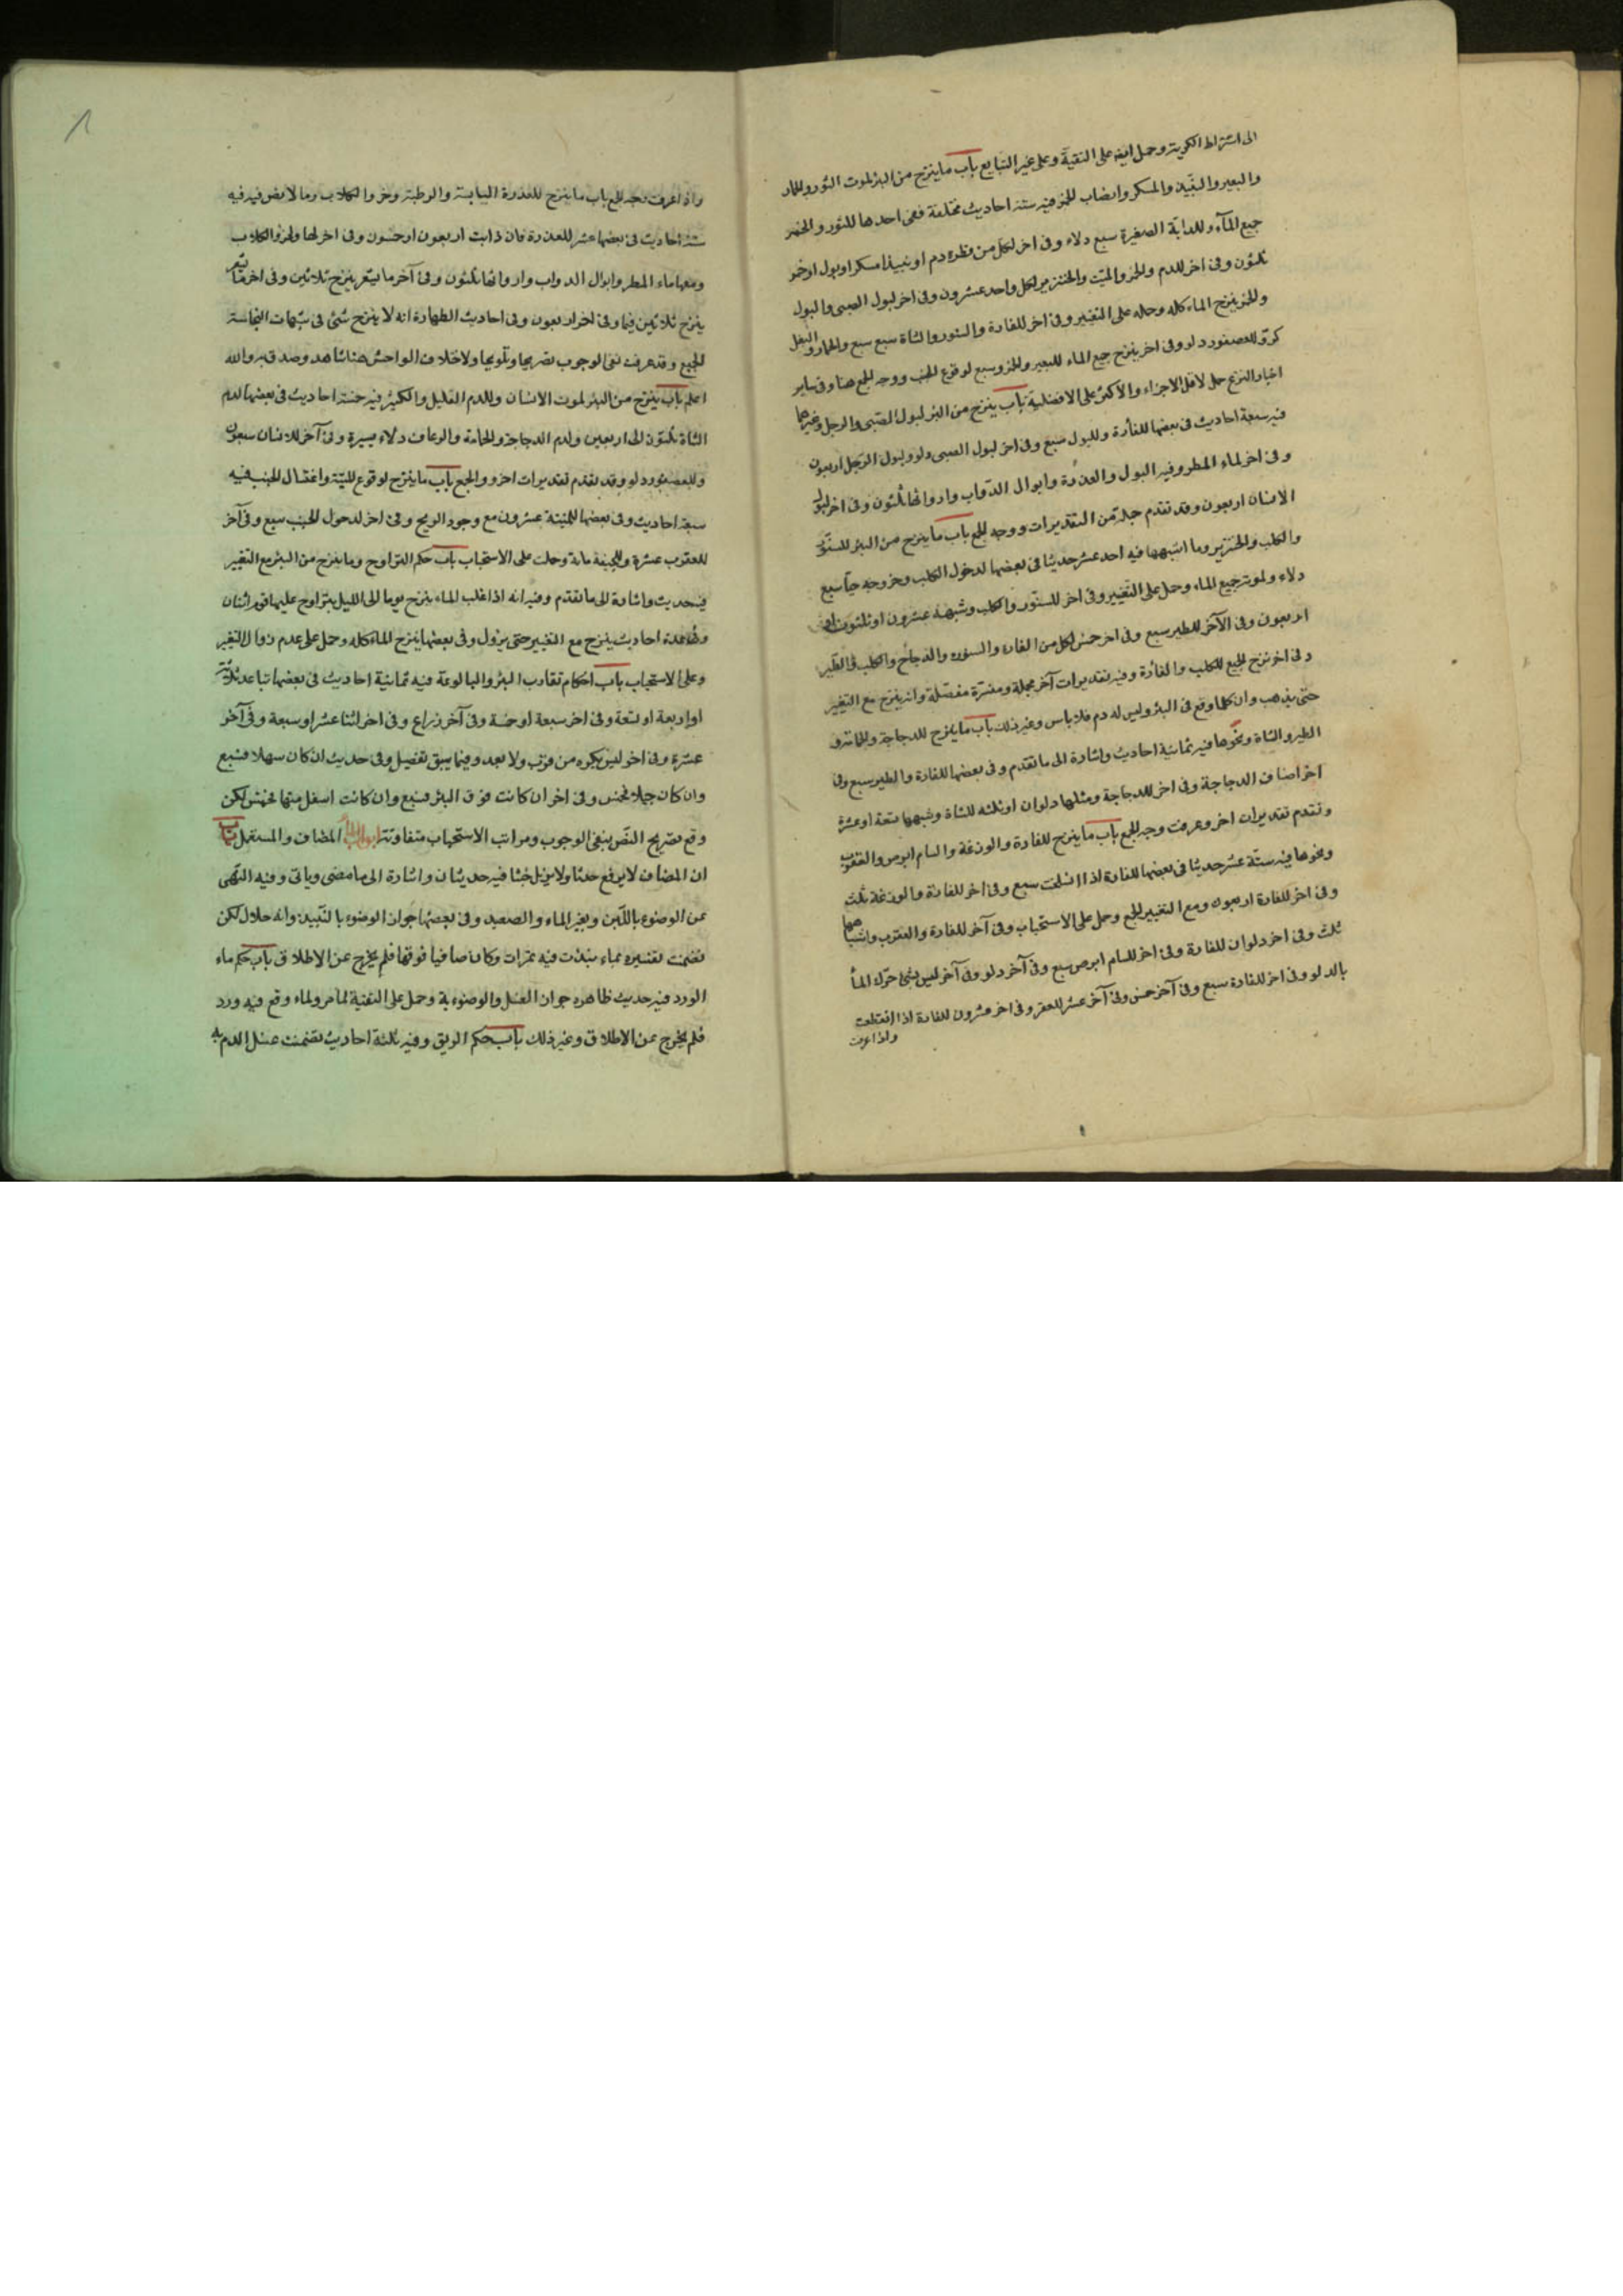 الى اشتراط الكرية وحمل ايضا على التقية وعلى غير النابع باب ما ينزح من البئر لموت الثور والحمار
والبعير والنبيذ والمسكر وانصباب الخمر فيه ستة احاديث مختلفة ففى احدها للثور والخمر
جميع الماء وللدابة الصغيرة سبع دلاء وفى اخر لكل من قطرة دم او نبيذ مسكر او بول او خمر
ثلثون وفى اخر للدم والخمر والميت والخنزير لكل واحد عشرون وفى اخر لبول الصبى والبول
والخمر ينزح الماء كله وحمله على التغيير وفى اخر للفارة والسنور والشاة سبع سبع والحمار والبغل
كر وللعصفور دلو وفى اخر ينزح جميع الماء للبعير والخمر وسبع لوقوع الجنب ووجه الجمع هنا وفى ساير
اخبار النزح حمل الاقل الاجزاء والاكثر على الافضلية باب ينزح من البئر لبول الصبى والرجل وغيرهما
فيه سبعة احاديث فى بعضها للفأرة وللبول سبع وفى اخر لبول الصبى دلو ولبول الرجل اربعون
وفى اخر لماء المطر وفيه البول والعذرة وابوال الدواب وارواثها ثلثون وفى اخر لبول
الانسان اربعون وقد تقدم جملة من التقديرات ووجه الجمع باب ما ينزح من البئر للسنور
والكلب والخنزير وما اشبهها فيه احد عشر حديثا فى بعضها لدخول الكلب وخروجه حيا سبع
دلاء ولموته جميع الماء وحمل على التغيير وفى اخر للسنور والكلب وشبهه عشرون او ثلثون او
اربعون وفى الآخر للطير سبع وفى اخر خمس لكل من الفارة والسنور والدجاج والكلب والطير
وفى اخر نزح الجميع للكلب والفارة وفيه تقديرات آخر مجملة ومفسرة مفصلة وانه ينزح مع التغيير
حتى يذهب وان كلما وقع فى البئر وليس له دم فلا باس وغير ذلك باب ما ينزح للدجاجة والحمامة و
الطير والشاة ونحوها فيه ثمانية احاديث واشارة الى ما تقدم وفى بعضها للفارة والطير سبع وفى
اخر اصناف الدجاجة وفى اخر للدجاجة ومثلها دلوان او ثلثه للشاة وشبهها تسعة او عشرة
وتقدم تقديران اخر وعرفت وجه الجمع باب ما ينزح للفارة والوزغة والسام ابرص والعقرب
ونحوها فيه ستة عشر حديثا فى بعضها للفارة اذا انسلخت سبع وفى اخر للفارة والوزغة ثلث
وفى اخر للفارة اربعون ومع التغيير الجمع وحمل على الاستحباب وفى آخر للفارة والعقرب واشباهها
ثلث وفى اخر دلوان للفارة وفى اخر للسام ابرص سبع وفى آخر دلو وفى آخر ليس بشئ حرك الماء
بالدلو وفى اخر للفارة سبع وفى آخر خمس وفى آخر عشر للعقرب وفى اخر عشرون للفارة اذا انقطعت
واذا عرفت
واذا عرفت وجه الجمع باب ما ينزح للعذرة اليابسة والرطبة وخرء الكلاب وما لا نص فيه فيه
ستة احاديث فى بعضها عشر للعذرة فان ذابت اربعون او خمسون وفى اخر لها ولخرء الكلاب
ومعها ماء المطر وابوال الدواب وارواثها ثلثون وفى آخر ما يتغير ينزح ثلاثين وفى اخر
ينزح ثلاثين فيما وفى اخر اربعون وفى احاديث الطهارة انه لا ينزح شئ فى شبهات النجاسة
الجميع وقد عرفت نفى الوجوب تصريحا وتلويحا ولاختلاف الواحش هنا شاهد وصدق به والله
اعلم باب ينزح من البئر لموت الانسان وللدم القليل والكثير فيه خمسة احاديث فى بعضها لدم
الشاة ثلثون الى اربعين ولدم الدجاجة والحمامة والرعاف دلاء يسيرة وفى آخر للانسان سبعون
وللعصفور دلو وقد تقدم تقديرات اخر والجمع باب ما ينزح لوقوع الميتة واغتسال الجنب فيه
سبعة احاديث وفى بعضها للميتة عشرون مع وجود الريح وفى اخر لدخول الجنب سبع وفى آخر
للعقرب عشرة وللجيفة مائة وحملت على الاستحباب باب حكم التراوح وما ينزح من البئر مع التغيير
فيه حديث واشارة الى ما تقدم وفيه انه اذا غلب الماء ينزح يوما الى الليل يتراوح عليها قوم اثنان
وفى عدة احاديث ينزح مع التغيير حتى يزول وفى بعضها ينزح الماء كله وحمل على عدم زوال التغير
وعلى الاستحباب باب احكام تقارب البئر والبالوعة فيه ثمانية احاديث فى بعضها تباعد ثلاثة
او اربعة او تسعة وفى اخر سبعة او خمسة وفى آخر ذراع وفى اخر اثنا عشر او سبعة وفى آخر
عشرة وفى اخر ليس يكره من قرب ولا بعد وفيما يسبق تفصيل وفى حديث ان كان سهلا فسبع
وان كان جبلا فخمس وفى اخر ان كانت فوق البئر فسبع وان كانت اسفل منها فخمس لكن
وقع تصريح النص بنفى الوجوب ومراتب الاستحباب متفاوتة ابواب الماء المضاف والمستعمل باب
ان المضاف لا يرفع حدثا ولا يزيل خبثا فيه حديثان واشارة الى ما مضى وياتى وفيه النهى
عن الوضوء باللبن وبغير الماء والصعيد وفى بعضها جواز الوضوء بالنبيذ وانه حلال لكن
تضمنت تفسيره بماء نبذت فيه تمرات وكان صافيا فوقها فلم يخرج عن الاطلاق باب حكم ماء
الورد فيه حديث ظاهره جواز الغسل والوضوء به وحمل على التقية لما مر ولماء وقع فيه ورد
فلم يخرج عن الاطلاق وغير ذلك باب حكم الريق وفيه ثلثة احاديث تضمنت غسل الدم به